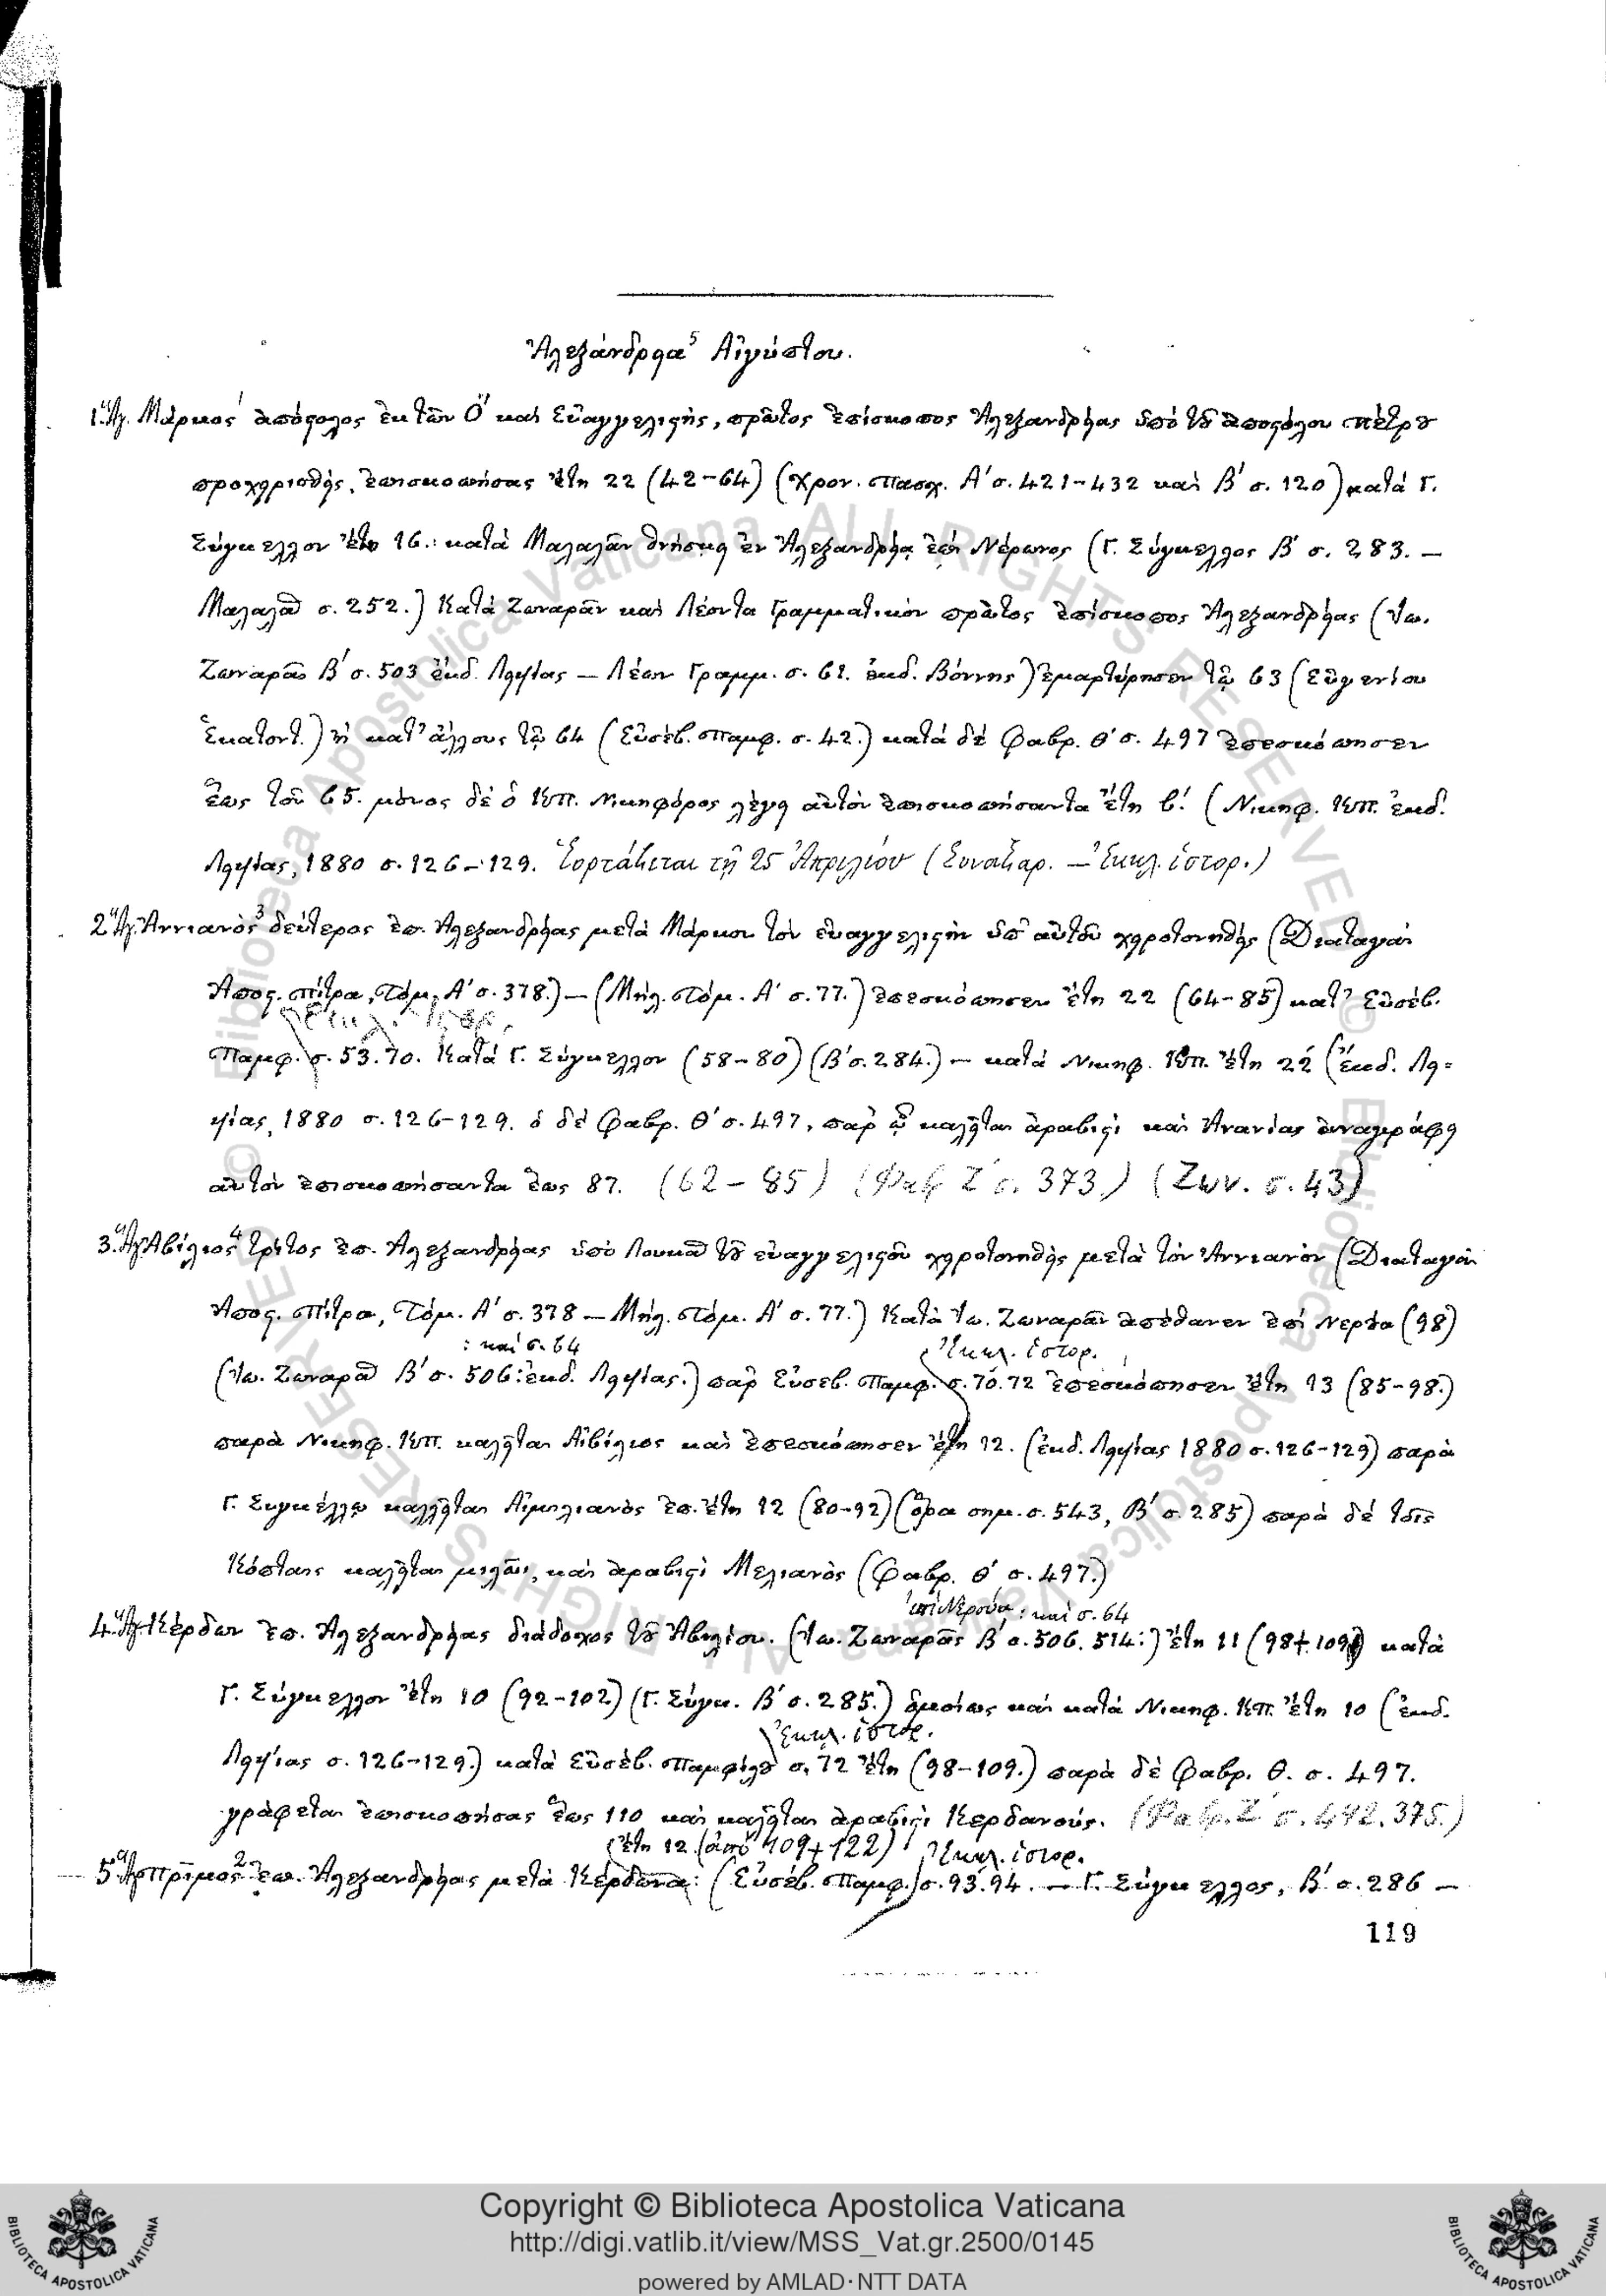 Ἀλεξάνδρεια⁵ Αἰγύπτου.
1. Ἅγ. Μάρκος¹ ἀπόστολος ἐκ τῶν Ό καὶ Εὐαγγελιστὴς, πρῶτος ἐπίσκοπος Ἀλεξανδρείας ὑπὸ τοῦ ἀποστόλου Πέτρου
προχειρισθεὶς, ἐπισκοπήσας ἔτη 22 (42-64) (Χρον. Πασχ. Α΄ σ. 421-432 καὶ Β΄ σ. 120) κατὰ Γ.
Σύγκελλον ἔτη 16.: κατὰ Μαλαλᾶν θνήσκει ἐν Ἀλεξανδρείᾳ ἐπὶ Νέρωνος (Γ. Σύγκελλος Β΄ σ. 283. —
Μαλαλᾶ σ. 252.) Κατὰ Ζωναρᾶν καὶ Λέοντα Γραμματικὸν πρῶτος ἐπίσκοπος Ἀλεξανδρείας (Ἰω.
Ζωναρᾶς Β΄ σ. 503 ἐκδ. Λειψίας — Λέων Γραμμ. σ. 61. ἐκδ. Βόννης) ἐμαρτύρησεν τῷ 63 (Εὐγενίου
Ἑκατοντ.) ἢ κατ' ἄλλους τῷ 64 (Εὐσέβ. Παμφ. σ. 42.) κατὰ δὲ Φαβρ. Θ΄ σ. 497 ἐπεσκόπησεν
ἕως τοῦ 65. μόνος δὲ ὁ Κπ. Νικηφόρος λέγει αὐτὸν ἐπισκοπήσαντα ἔτη β΄. (Νικηφ. Κπ. ἐκδ.
Λειψίας, 1880 σ. 126-129. Ἑορτάζεται τῇ 25 Ἀπριλίου (Συναξαρ. — Ἐκκλ. ἱστορ.)
2. Ἅγ. Ἀννιανὸς³ δεύτερος ἐπ. Ἀλεξανδρείας μετὰ Μάρκον τὸν εὐαγγελιστὴν ὑπ' αὐτοῦ χειροτονηθεὶς (Διαταγαὶ
Ἀποστ. Πίτρα, Τόμ. Α΄ σ. 378.) — (Μήλ. Τόμ. Α΄ σ. 77.) ἐπεσκόπησεν ἔτη 22 (64-85) κατ' Εὐσέβ.
Ἐκκλ. Ἱστορ.
Παμφ. σ. 53. 70. Κατὰ Γ. Σύγκελλον (58-80) (Β΄ σ. 284.) — κατὰ Νικηφ. Κπ. ἔτη 22 (ἐκδ. Λει-
ψίας, 1880 σ. 126-129. ὁ δὲ Φαβρ. Θ΄ σ. 497, παρ' ᾧ καλεῖται ἀραβιστὶ καὶ Ἀνανίας ἀναγράφει
αὐτὸν ἐπισκοπήσαντα ἕως 87. (62-85) (Φαβ Ζ΄ σ. 373.) (Ζων. σ. 43)
3. Ἅγ. Ἀβίλιος⁴ τρίτος ἐπ. Ἀλεξανδρείας ὑπὸ Λουκᾶ τοῦ εὐαγγελιστοῦ χειροτονηθεὶς μετὰ τὸν Ἀννιανὸν (Διαταγαὶ
Ἀποστ. Πίτρα, Τόμ. Α΄ σ. 378 — Μήλ. Τόμ. Α΄ σ. 77.) Κατὰ Ἰω. Ζωναρᾶν ἀπέθανεν ἐπὶ Νερούα (98)
: καὶ σ. 64 Ἐκκλ. ἱστορ.
(Ἰω. Ζωναρᾶ Β΄ σ. 506: ἐκδ. Λειψίας.) παρ' Εὐσεβ. Παμφ. σ. 70. 72 ἐπεσκόπησεν ἔτη 13 (85-98.)
παρὰ Νικηφ. Κπ. καλεῖται Αἰβίλιος καὶ ἐπεσκόπησεν ἔτη 12. (ἐκδ. Λειψίας 1880 σ. 126-129) παρὰ
Γ. Συγκέλλῳ καλεῖται Αἰμιλιανὸς ἐπ. ἔτη 12 (80-92) (ὅρα σημ. σ. 543, Β΄ σ. 285) παρὰ δὲ τοῖς
Κόπταις καλεῖται καὶ ἀραβιστὶ Μελιανὸς (Φαβρ. Θ΄ σ. 497.)
ἐπὶ Νερούα : καὶ σ. 64
4. Ἅγ. Κέρδων ἐπ. Ἀλεξανδρείας διάδοχος τοῦ Ἀβιλίου. (Ἰω. Ζωναρᾶς Β΄ σ. 506. 514:) ἔτη 11 (98+109) κατὰ
Γ. Σύγκελλον ἔτη 10 (92-102) (Γ. Σύγκ. Β΄ σ. 285.) ὁμοίως καὶ κατὰ Νικηφ. Κπ. ἔτη 10 (ἐκδ.
Ἐκκλ. ἱστορ.
Λειψίας σ. 126-129.) κατὰ Εὐσέβ. Παμφίλου σ. 72 ἔτη (98-109.) παρὰ δὲ Φαβρ. Θ. σ. 497.
γράφεται ἐπισκοπήσας ἕως 110 καὶ καλεῖται ἀραβιστὶ Κερδανούς. (Φαβρ. Ζ΄ σ. 442. 375.)
(ἔτη 12 (ἀπὸ 109+122) Ἐκκλ. ἱστορ.
5. Ἅγ. Πρῖμος² ἐπ. Ἀλεξανδρείας μετὰ Κέρδωνα: (Εὐσέβ. Παμφ.) σ. 93. 94. — Γ. Σύγκελλος, Β΄ σ. 286 —
119
© Biblioteca Apostolica Vaticana ALL RIGHTS RESERVED
Copyright © Biblioteca Apostolica Vaticana
http://digi.vatlib.it/view/MSS_Vat.gr.2500/0145
powered by AMLAD·NTT DATA
BIBLIOTECA APOSTOLICA VATICANA
BIBLIOTECA APOSTOLICA VATICANA